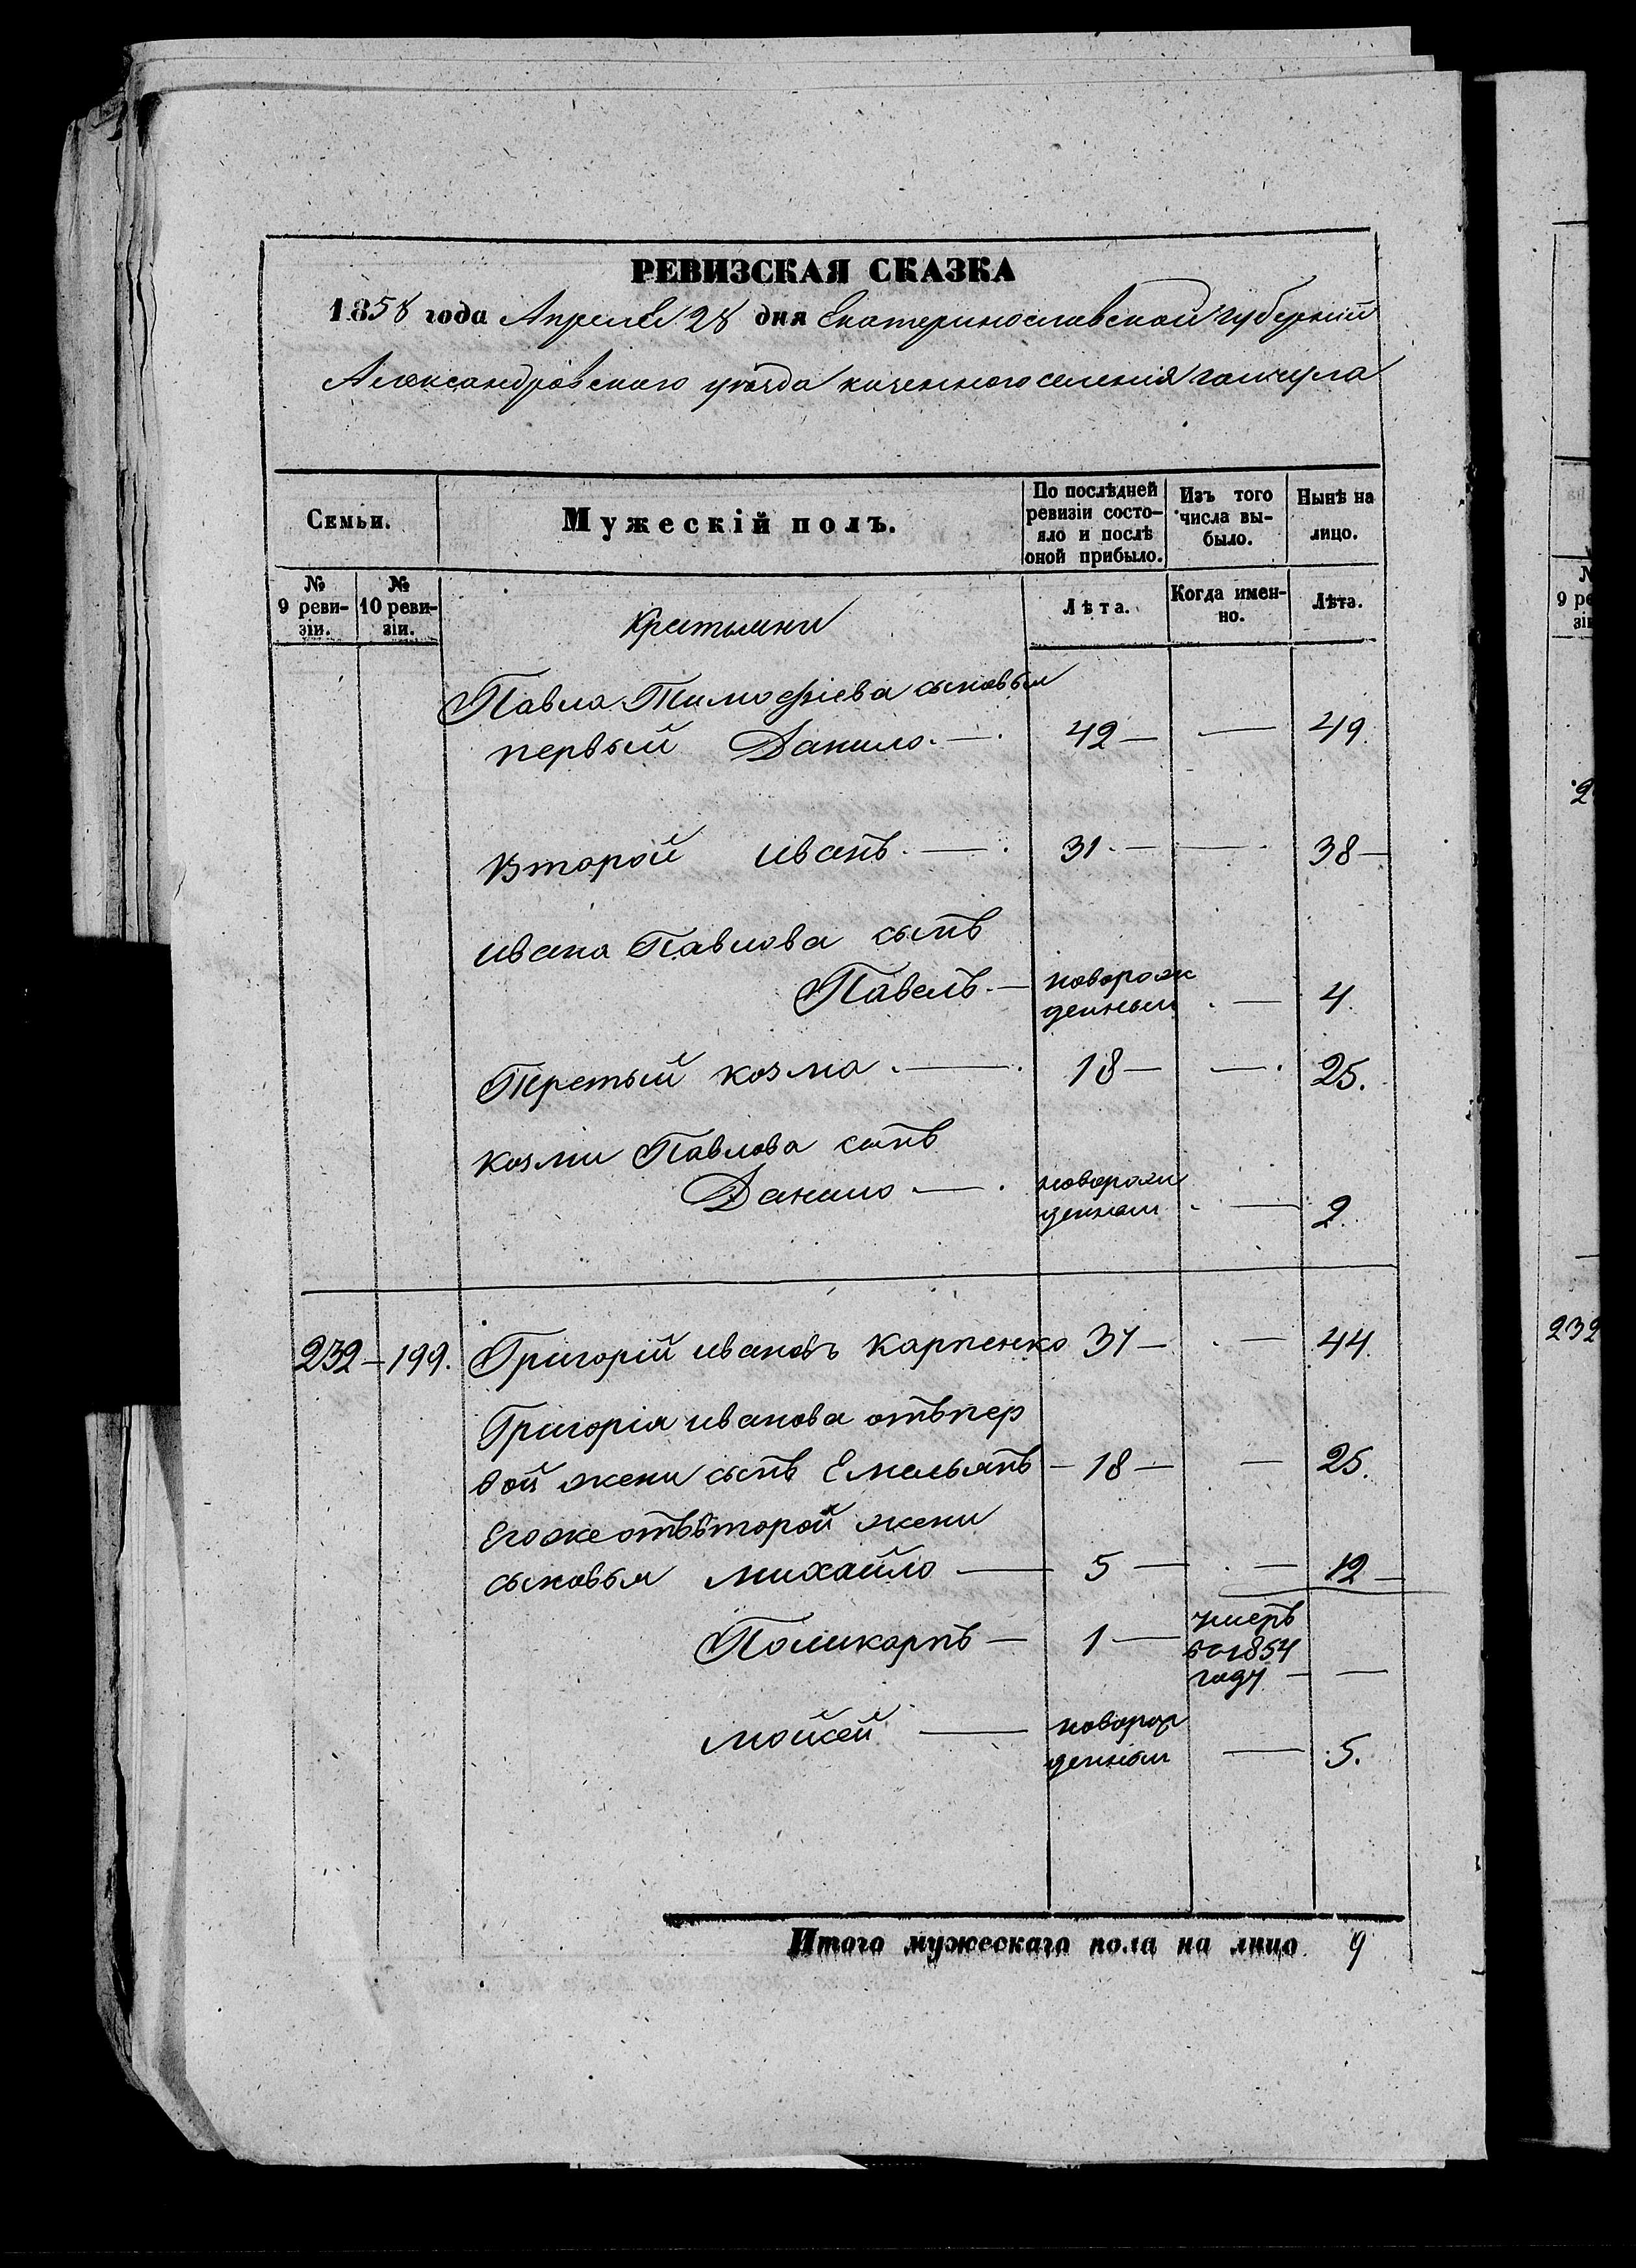 РЕВИЗСКАЯ СКАЗКА
1858 года Апреля 28 дня Екатеринославской губерний
Александровского уѣзда казенного селения гайчула
Семьи.
Мужескій полъ.
По послѣдней ревизіи состо-
яло и послѣ
оной прибыло.
Изъ того
числа вы-
было.
Нынѣ на
лицо.
№
9 реви-
зіи.
№
10 реви-
зіи.
Лѣта.
Когда имен-
но.
Лѣта.
Крестьяни
Павла Тимофіева сыновья
первый Данило. — 42 — — 49.
Второй иванъ. — 31. — — 38 —
ивана Павлова сынъ
Павелъ. — новорож
денный — 4.
Третый козма. — 18 — — 25.
козми Павлова сынъ
Данило — новорож
денный — 2.
232 — 199. Григорій ивановъ Карпенко 37 — — 44.
Григорія иванова отъпер
вой жени сынъ Емельянъ — 18 — — 25.
Егоже отъвторой жени
сыновья михайло — 5 — — 12 —
Поликарпъ — 1 — умеръ
во 1854
году — —
мойсей — новорож
денный — 5.
Итого мужескаго пола на лицо 9
№
9 ре
зі
232